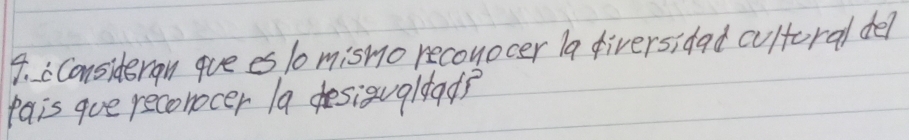 4. ¿Consideran que es lo mismo reconocer la diversidad cultural del
país que reconocer la desigualdad?